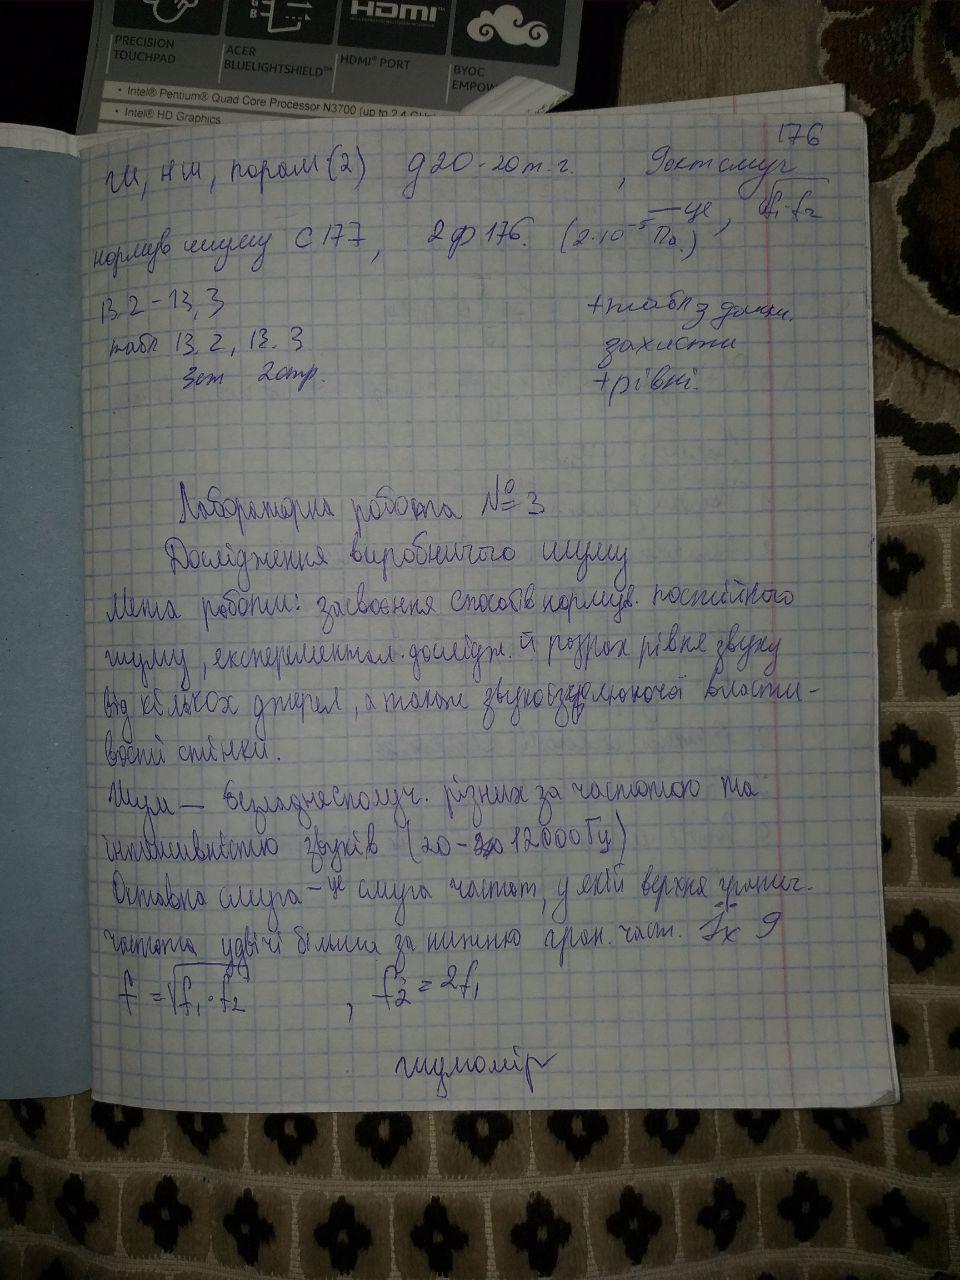 PRECISION
TOUCHPAD
ACER
BLUELIGHTSHIELD™
HDMI
HDMI® PORT
BYOC
EMPOW
• Intel® Pentium® Quad Core Processor N3700 (up to 2.4 GHz
• Intel® HD Graphics
176
ш, нш, парам (2) д20-20т.г. , 9октсмуг
— це , √f₁·f₂
нормув шуму С 177, 2ф 176. (2·10⁻⁵ Па.)
13.2-13,3
табл 13.2, 13.3
2стр.
+табл з
захисти
+рівні.
Лабораторна робота №3
Дослідження виробничого шуму
Мета роботи: засвоєння способів нормув. постійного
шуму, експериментал. дослідж. й розрах рівня звуку
від кількох джерел, а також звукоізолюючої власти-
вості стінки.
Шум — безладнесполуч. різних за частотою та
інтенсивністю звуків (20- 12000Гц)
Октавна смуга - це смуга частот, у якій верхня гранич.
частота удвічі більша за нижню гран. част. Їх 9
f = √f₁·f₂ , f₂ = 2f₁
шумомір